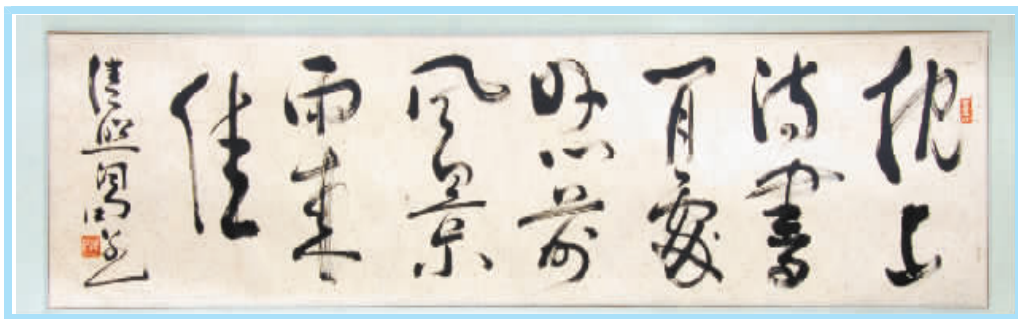 枕上
詩書
閒處
好門前
風景
雨來
佳